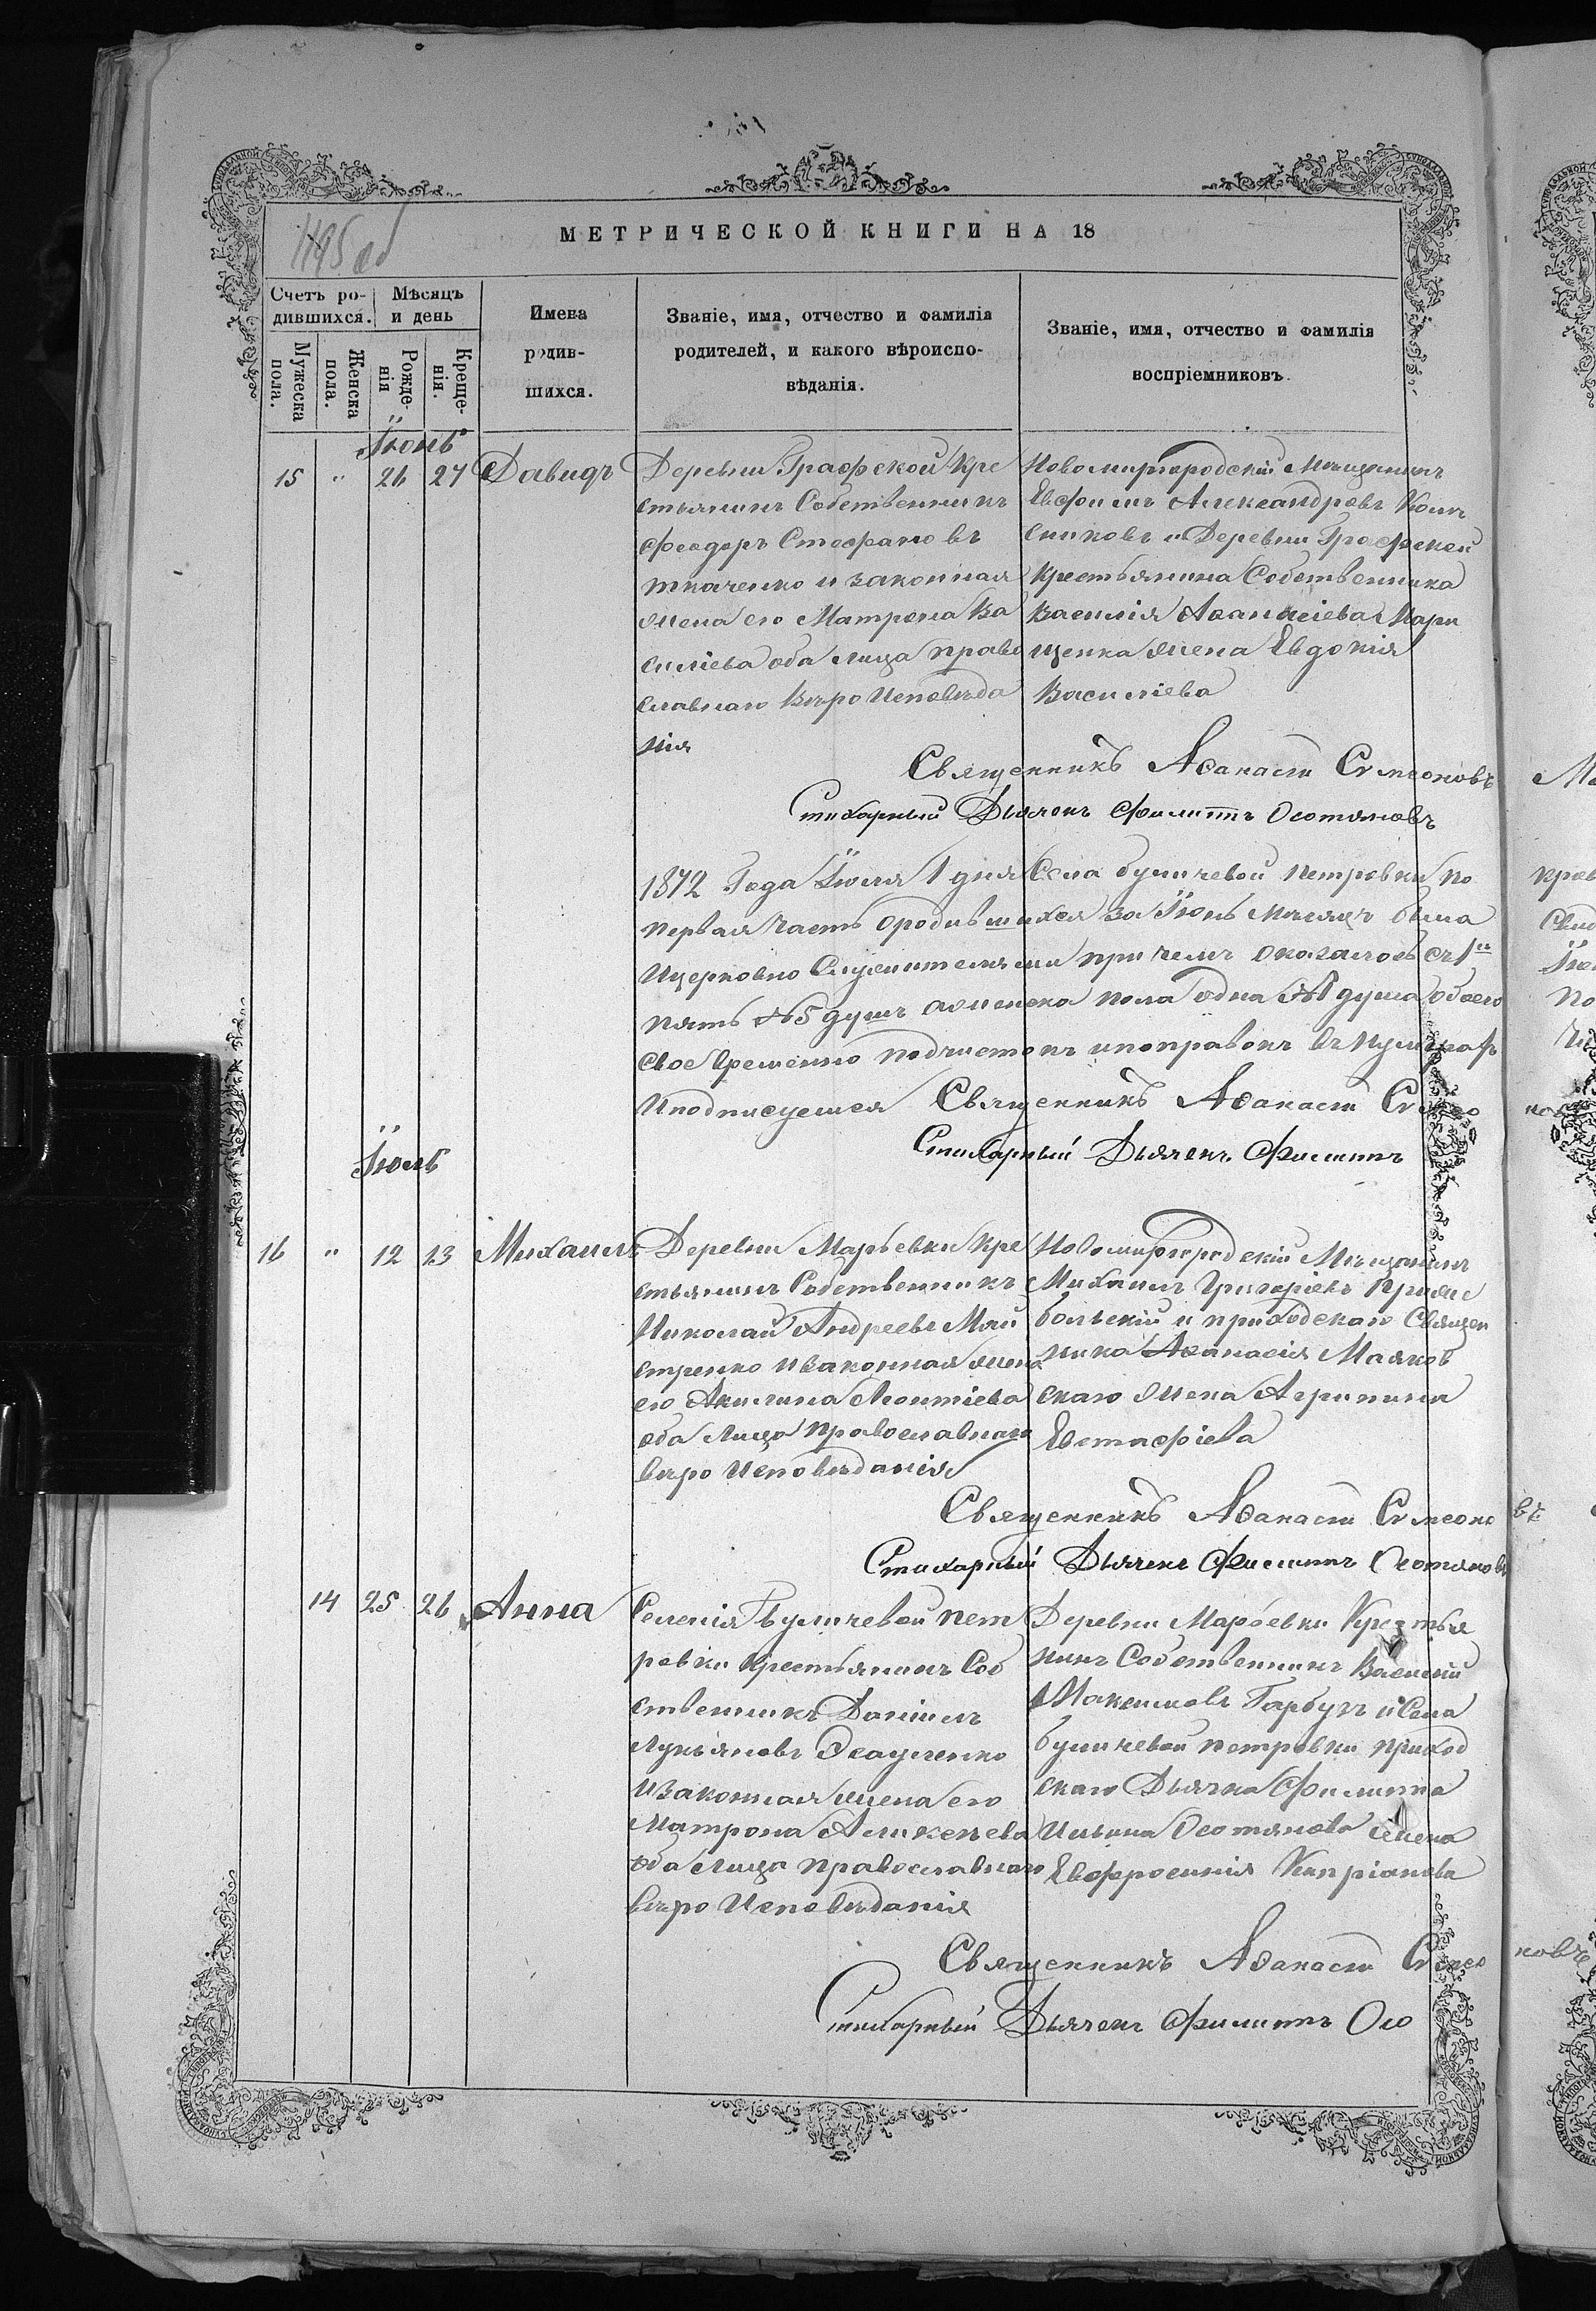 1195 об
МЕТРИЧЕСКОЙ КНИГИ НА 18
Счетъ ро-
дившихся.
Мужеска
пола.
Женска
пола.
Мѣсяцъ
и день
Рожде-
нія
Креще-
нія.
Имена
родив-
шихся.
Званіе, имя, отчество и фамилія
родителей, и какого вѣроиспо-
вѣданія.
Званіе, имя, отчество и фамилія
воспріемниковъ.
Іюнь
15 " 26 27 Давидъ
Деревни Графской Кре
стьянинъ Собственникъ
Феодоръ Стефановъ
Ткаченко и законная
жена его Матрона Ва
силіева оба лица право
славнаго Вѣро Исповѣда
нія
Новомиргородскій Мѣщанинъ
Евфимъ Александровъ
и Деревни Графской
Крестьянина Собственника
Василія Аѳанасіева Мари
щенка жена Евдокія
Василіева
Священникъ Аѳанасій Симеоновъ
Стихарный Дьячекъ Филиппъ Осотяновъ
1872 Года Іюля 1 дня Села булычевой Петровки по
первая часть о родившихся за Іюнь Мѣсяцъ была
Ицерковно Служителями при чемъ оказалось
пять №5 душъ аженска пола одна №1 душа обоего
своевременно подчистокъ ипоправокъ
Иподписуемся Священникъ Аѳанасій Симео
Стихарный Дьячекъ Филиппъ
Іюль
16 " 12 13 Михаилъ
Деревни Марьевки Кре
стьянинъ Собственникъ
Николай Андреевъ Май
стренко изаконная жена
его Акилина Леонтіева
оба Лица Православнаго
вѣро Исповѣданія
Новомиргородскій Мѣщанинъ
Михаилъ Григоріевъ
и приходскаго Священ
ника Аѳанасія Маяков
скаго жена Агрипина
Евстафіева
Священникъ Аѳанасій Симеоно
Стихарный Дьячекъ Филиппъ Осотяновъ
14 25 26 Анна
Селенія Булычевой Пет
ровки Крестьянинъ Соб
ственникъ Даніилъ
Лукьяновъ
изаконная жена его
Матрона Алексѣева
оба лица православнаго
вѣро Исповѣданія
Деревни Марьевки Крестья
нинъ Собственникъ Василій
Максимовъ Гарбузъ иСела
булычевой петровки приход
скаго Дьячка Филиппа
Ильина Осотянова жена
Евфросинія Кипріанова
Священникъ Аѳанасій Симео
Стихарный Дьячекъ Филиппъ Осо